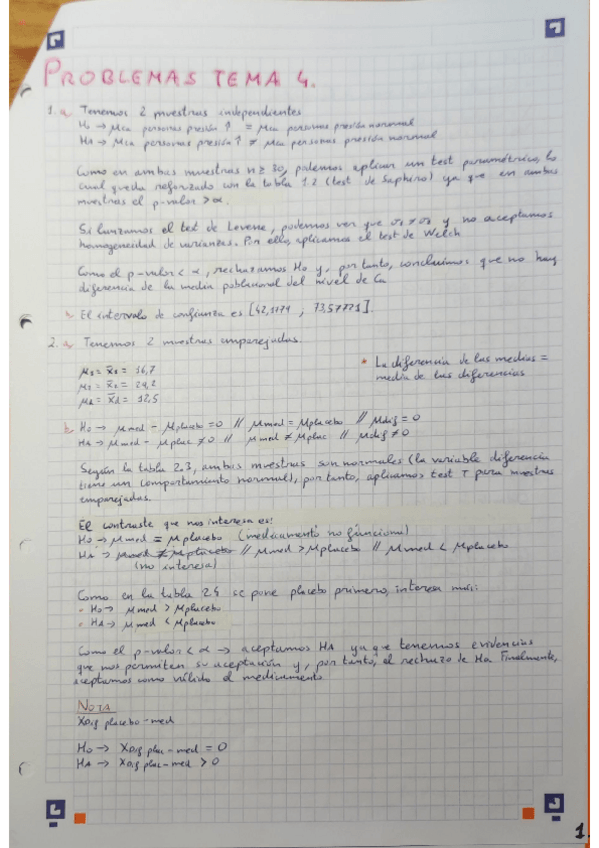 PROBLEMAS TEMA 4.
1. a Tenemos 2 muestras independientes
H0 → μca personas presión ↑ = μca personas presión normal
HA → μca personas presión ↑ ≠ μca personas presión normal
Como en ambas muestras n ≥ 30, podemos aplicar un test paramétrico, lo
cual queda reforzado con la tabla 1.2 (test de Saphiro) ya que en ambas
muestras el p-valor > α.
Si lanzamos el test de Levene, podemos ver que σ1 ≠ σ2 y no aceptamos
homogeneidad de varianzas. Por ello, aplicamos el test de Welch
Como el p-valor < α, rechazamos H0 y, por tanto, concluimos que no hay
diferencia de la media poblacional del nivel de Ca
b El intervalo de confianza es [42,1171 ; 73,57771].
2. a Tenemos 2 muestras emparejadas.
μ1 = x̄1 = 36,7
μ2 = x̄2 = 24,2
μd = x̄d = 12,5
* La diferencia de las medias =
media de las diferencias
b H0 → μmed - μplacebo = 0 // μmed = μplacebo // μdif = 0
HA → μmed - μplac ≠ 0 // μmed ≠ μplac // μdif ≠ 0
Según la tabla 2.3, ambas muestras son normales (la variable diferencia
tiene un comportamiento normal), por tanto, aplicamos test T para muestras
emparejadas.
El contraste que nos interesa es:
H0 → μmed = μplacebo (medicamento no funciona)
HA → μmed ≠ μplacebo // μmed > μplacebo // μmed < μplacebo
(no interesa)
Como en la tabla 2.4 se pone placebo primero, interesa más:
• H0 → μmed > μplacebo
• HA → μmed < μplacebo
Como el p-valor < α → aceptamos HA ya que tenemos evidencias
que nos permiten su aceptación y, por tanto, el rechazo de H0. Finalmente,
aceptamos como válido el medicamento
NOTA
Xdif placebo-med
H0 → Xdif plac-med = 0
HA → Xdif plac-med > 0
1.